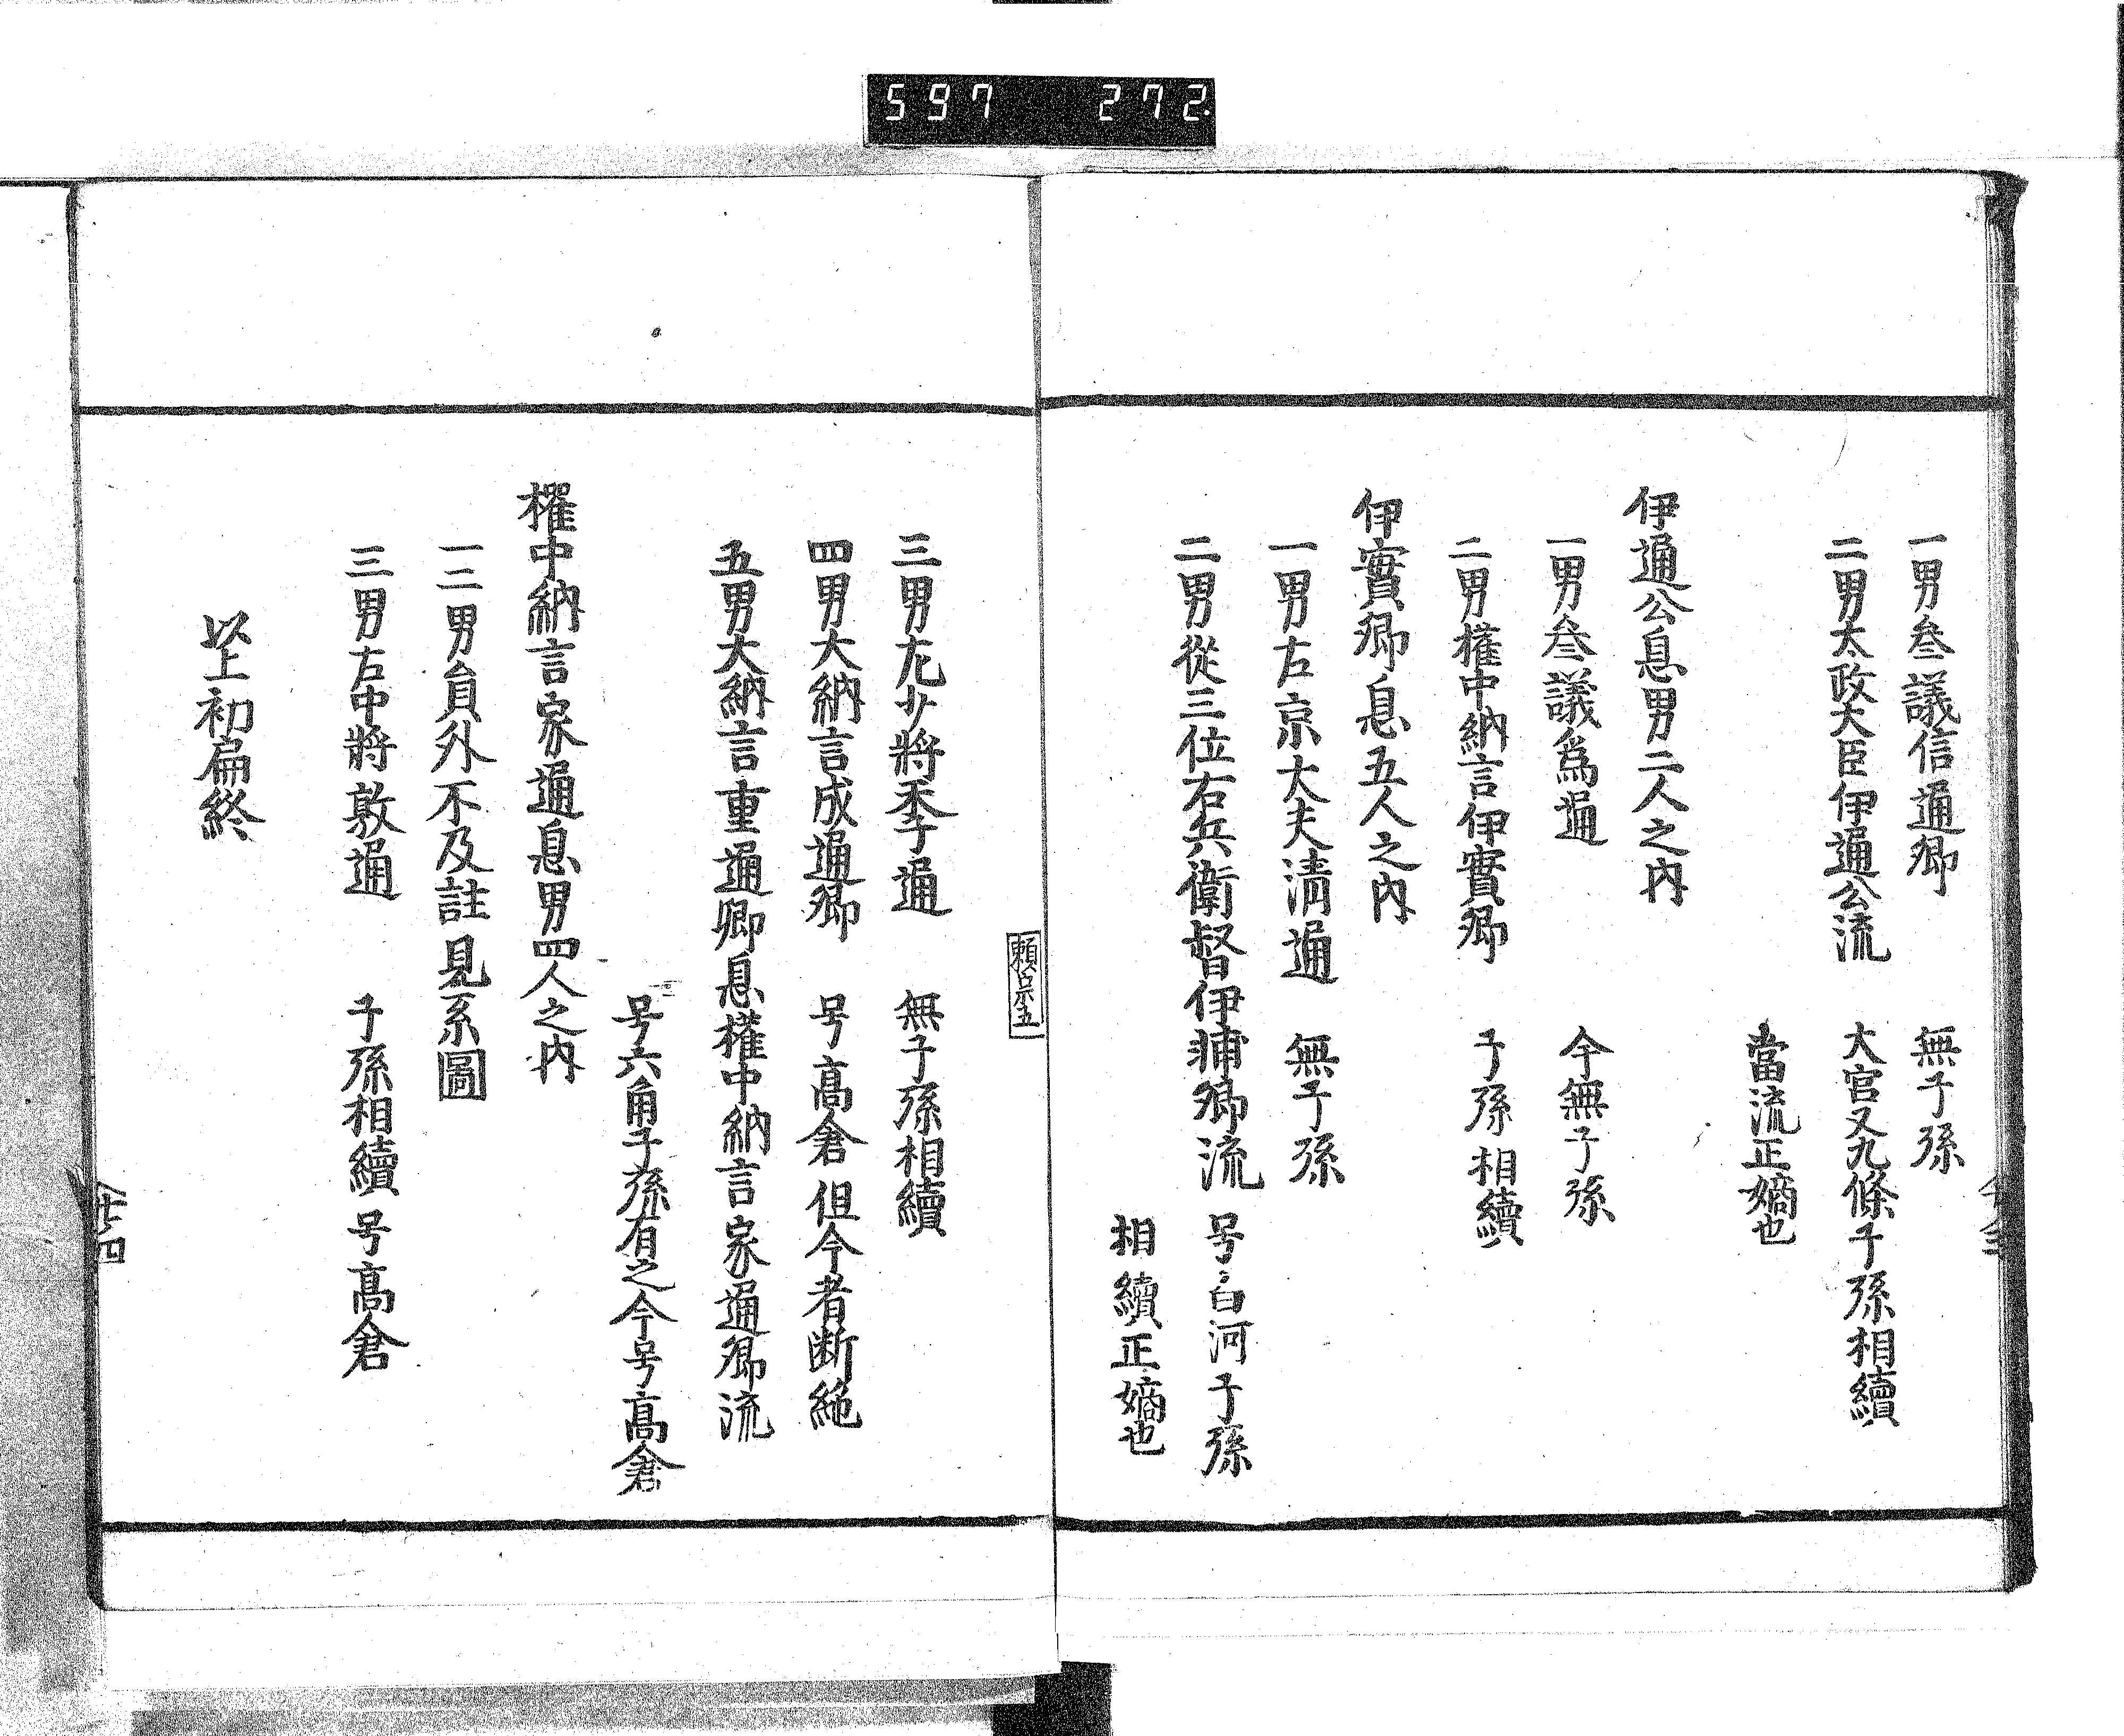 597 272
一男叅議信通卿 無子孫
二男太政大臣伊通公流 大宮又九條子孫相續
當流正嫡也
伊通公息男二人之內
一男叅議爲通 今無子孫
二男權中納言伊實卿 子孫相續
伊實卿息五人之內
一男左京大夫清通 無子孫
二男從三位右兵衛督伊輔卿流 号白河子孫
相續正嫡也
頼宗五
三男左少將季通 無子孫相續
四男大納言成通卿 号髙倉但今者断絶
五男大納言重通卿息權中納言家通卿流
号六角子孫有之今号髙倉
權中納言家通息男四人之内
一二男員外不及註見系圖
三男右中將敦通 子孫相續号髙倉
以上初扁終
廿四